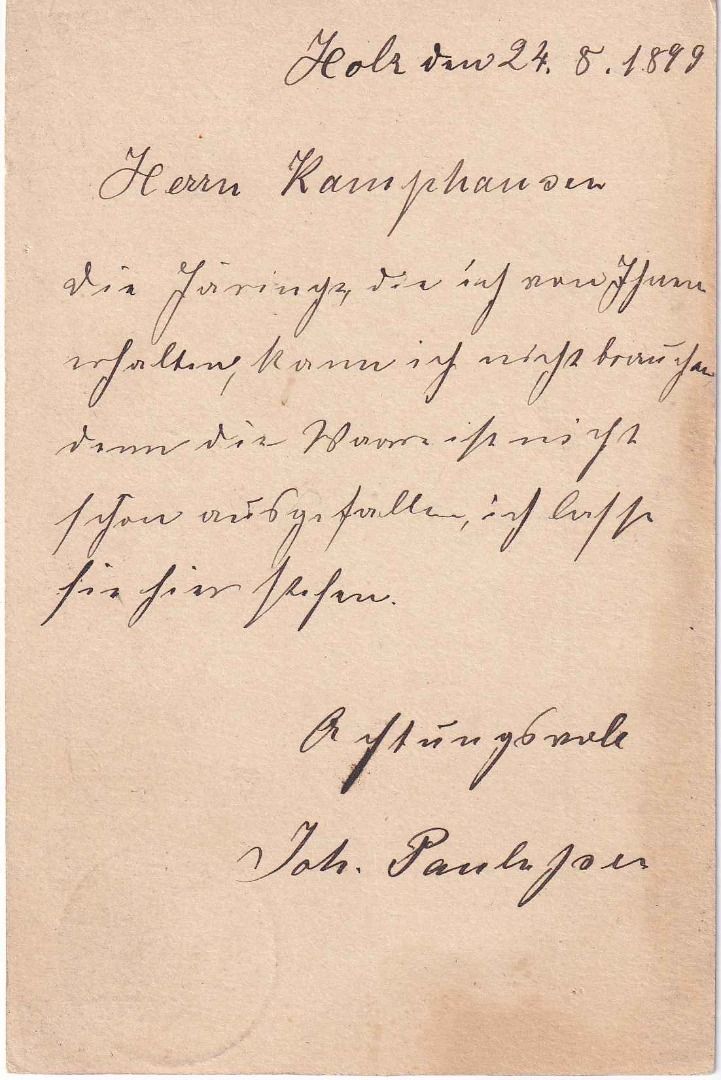 Holz den 24. 8. 1899
Herrn Kamphausen
die Häringe, die ich von Ihnen
erhalten, kann ich nicht brauchen
denn die Waare ist nicht
schön ausgefallen, ich lasse
sie hier stehen.
Achtungsvoll
Joh. Paulussen